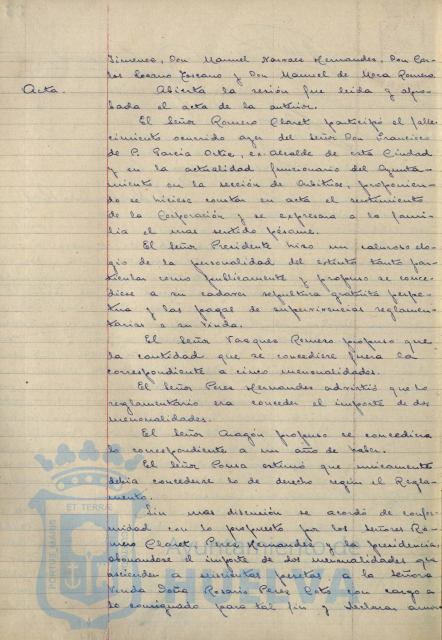 Jimenez, Don Manuel Narvaez Hernandez, Don Car-
los Lozano Toscano y Don Manuel de Mora Romero
Acta. Abierta la sesión fue leida y apro-
bada el acta de la anterior.
El Señor Romero Claret participó el falle-
cimiento ocurrido ayer del Señor Don Francisco
de P. García Ortiz, ex-Alcalde de esta Ciudad
y en la actualidad funcionario del Ayunta-
miento en la sección de Arbitrios, proponien-
do se hiciese constar en acta el sentimiento
de la Corporación y se expresara a la fami-
lia el mas sentido pésame.
El Señor Presidente hizo un caluroso elo-
gio de la personalidad del extinto tanto par-
ticular como publicamente y propuso se conce-
diese a su cadaver sepultura gratuita perpe-
tua y las pagas de supervivencias reglamen-
tarias a su viuda.
El Señor Vazquez Romero propuso que
la cantidad que se concediese fuera la
correspondiente a cinco mensualidades.
El Señor Perez Hernandez advirtió que lo
reglamentario era conceder el importe de dos
mensualidades.
El Señor Aragón propuso se concediera
lo correspondiente a un año de haber.
El Señor Pousa estimó que unicamente
debia concederse lo de derecho según el Regla-
mento.
Sin mas discusión se acordó de confor-
midad con lo propuesto por los señores Ro-
mero Claret, Perez Hernandez y la presidencia,
abonandose el importe de dos mensualidades que
ascienden a seiscientas pesetas a la señora
Viuda Doña Rosario Perez Coto con cargo a
lo consignado para tal fin y declarar
PORTUS MARIS ET TERRAE
Ayuntamiento de
HUELVA